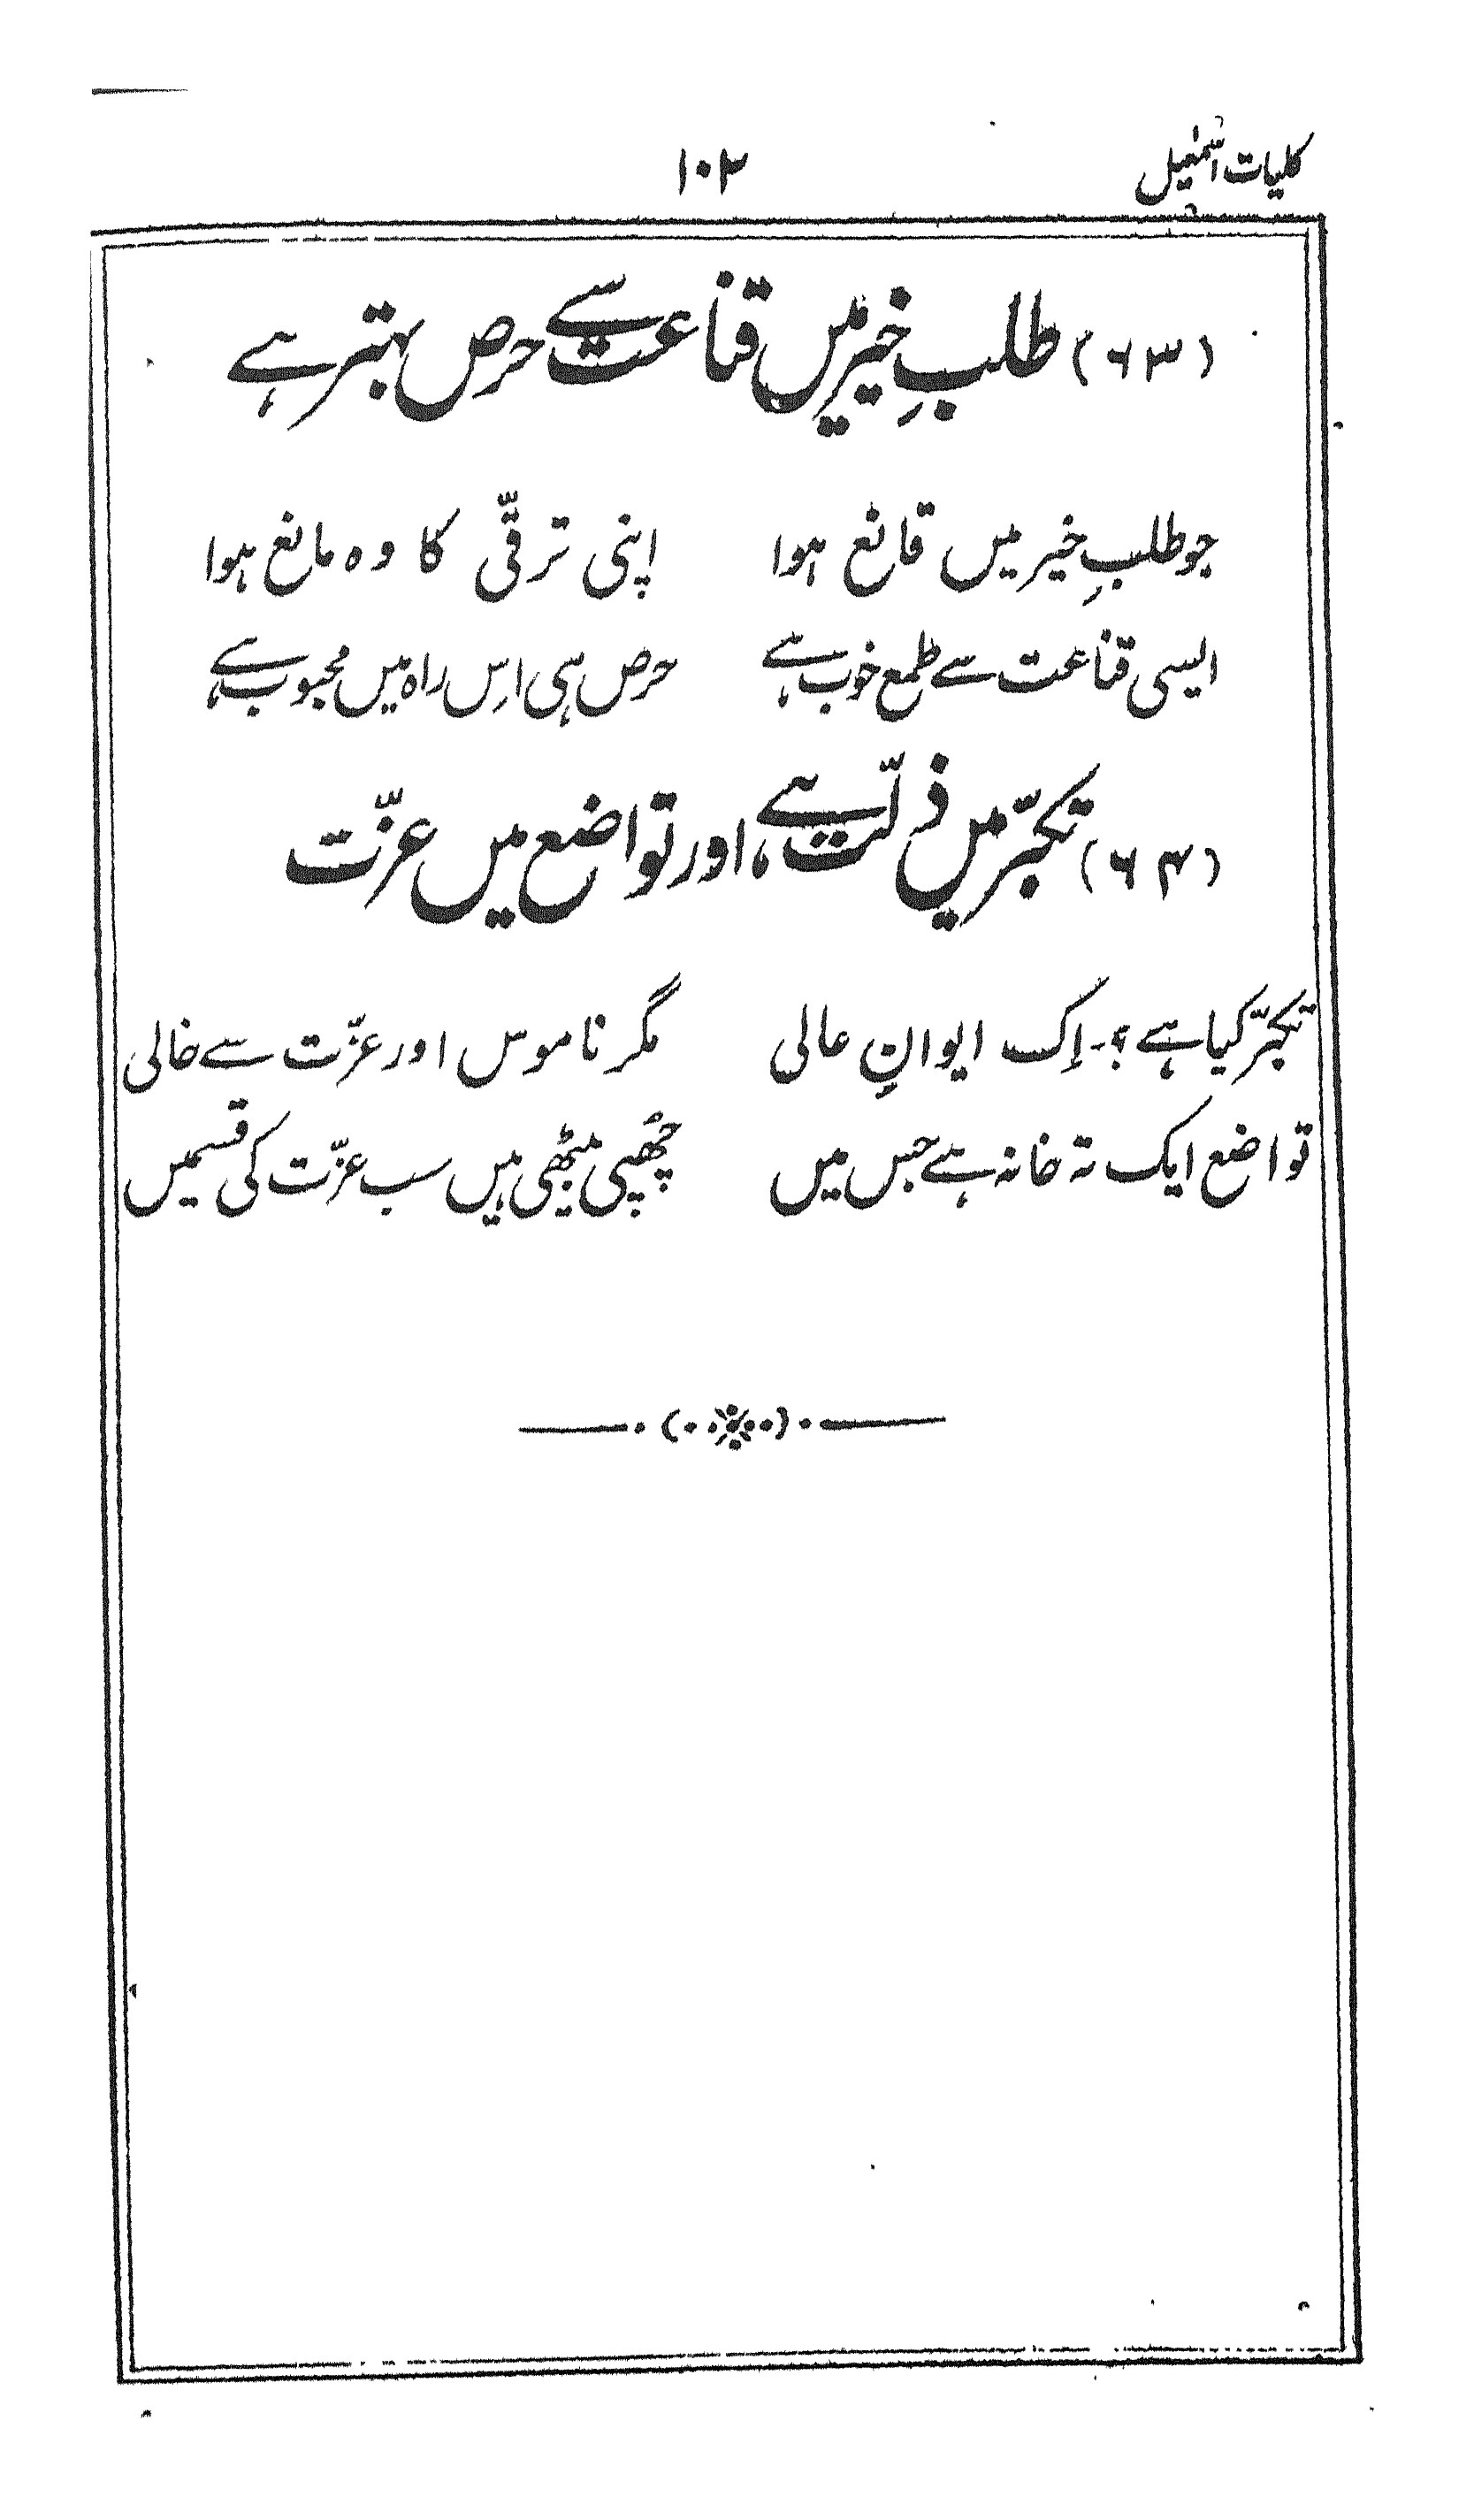 کلیات اسمٰعیل ۱۰۲
(۶۳) طلبِ خیر میں قناعت سے حرص بہتر ہے
جو طلبِ خیر میں قانع ہوا اپنی ترقّی کا وہ مانع ہوا
ایسی قناعت سے طمع خوب ہے حرص ہی اِس راہ میں محبوب ہے
(۶۴) تکبّر میں ذلّت ہے، اور تواضع میں عزّت
تکبّر کیا ہے؟۔ اِک ایوانِ عالی مگر ناموس اور عزّت سے خالی
تواضع ایک تہ خانہ ہے جس میں چھُپی بیٹھی ہیں سب عزّت کی قسمیں